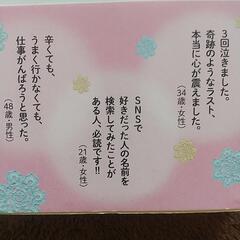 3回泣きました。
奇跡のようなラスト、
本当に心が震えました。
（34歳・女性）
SNSで
好きだった人の名前を
検索してみたことが
ある人、必読です!!
（21歳・女性）
辛くても、
うまく行かなくても、
仕事がんばろうと思った。
（48歳・男性）